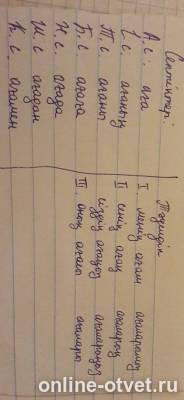 Септіктер:
А.с. аға
І.с. ағаның
Т.с. ағаны
Б.с. ағаға
ағада
Ш.с. ағадан
К.с. ағамен
Тәуелдік
I менің ағам
II сенің ағаң ағаларың
сіздің ағаңыз ағаларыңыз
III. оның ағасы ағалары
online-otvet.ru